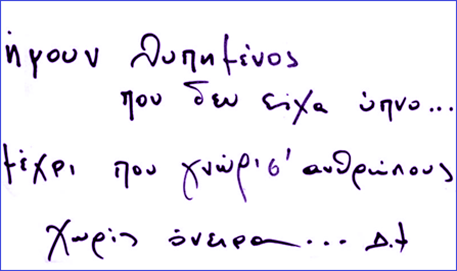 ήμουν λυπημένος
που δεν είχα ύπνο...
μέχρι που γνώρισ' ανθρώπους
χωρίς όνειρα...